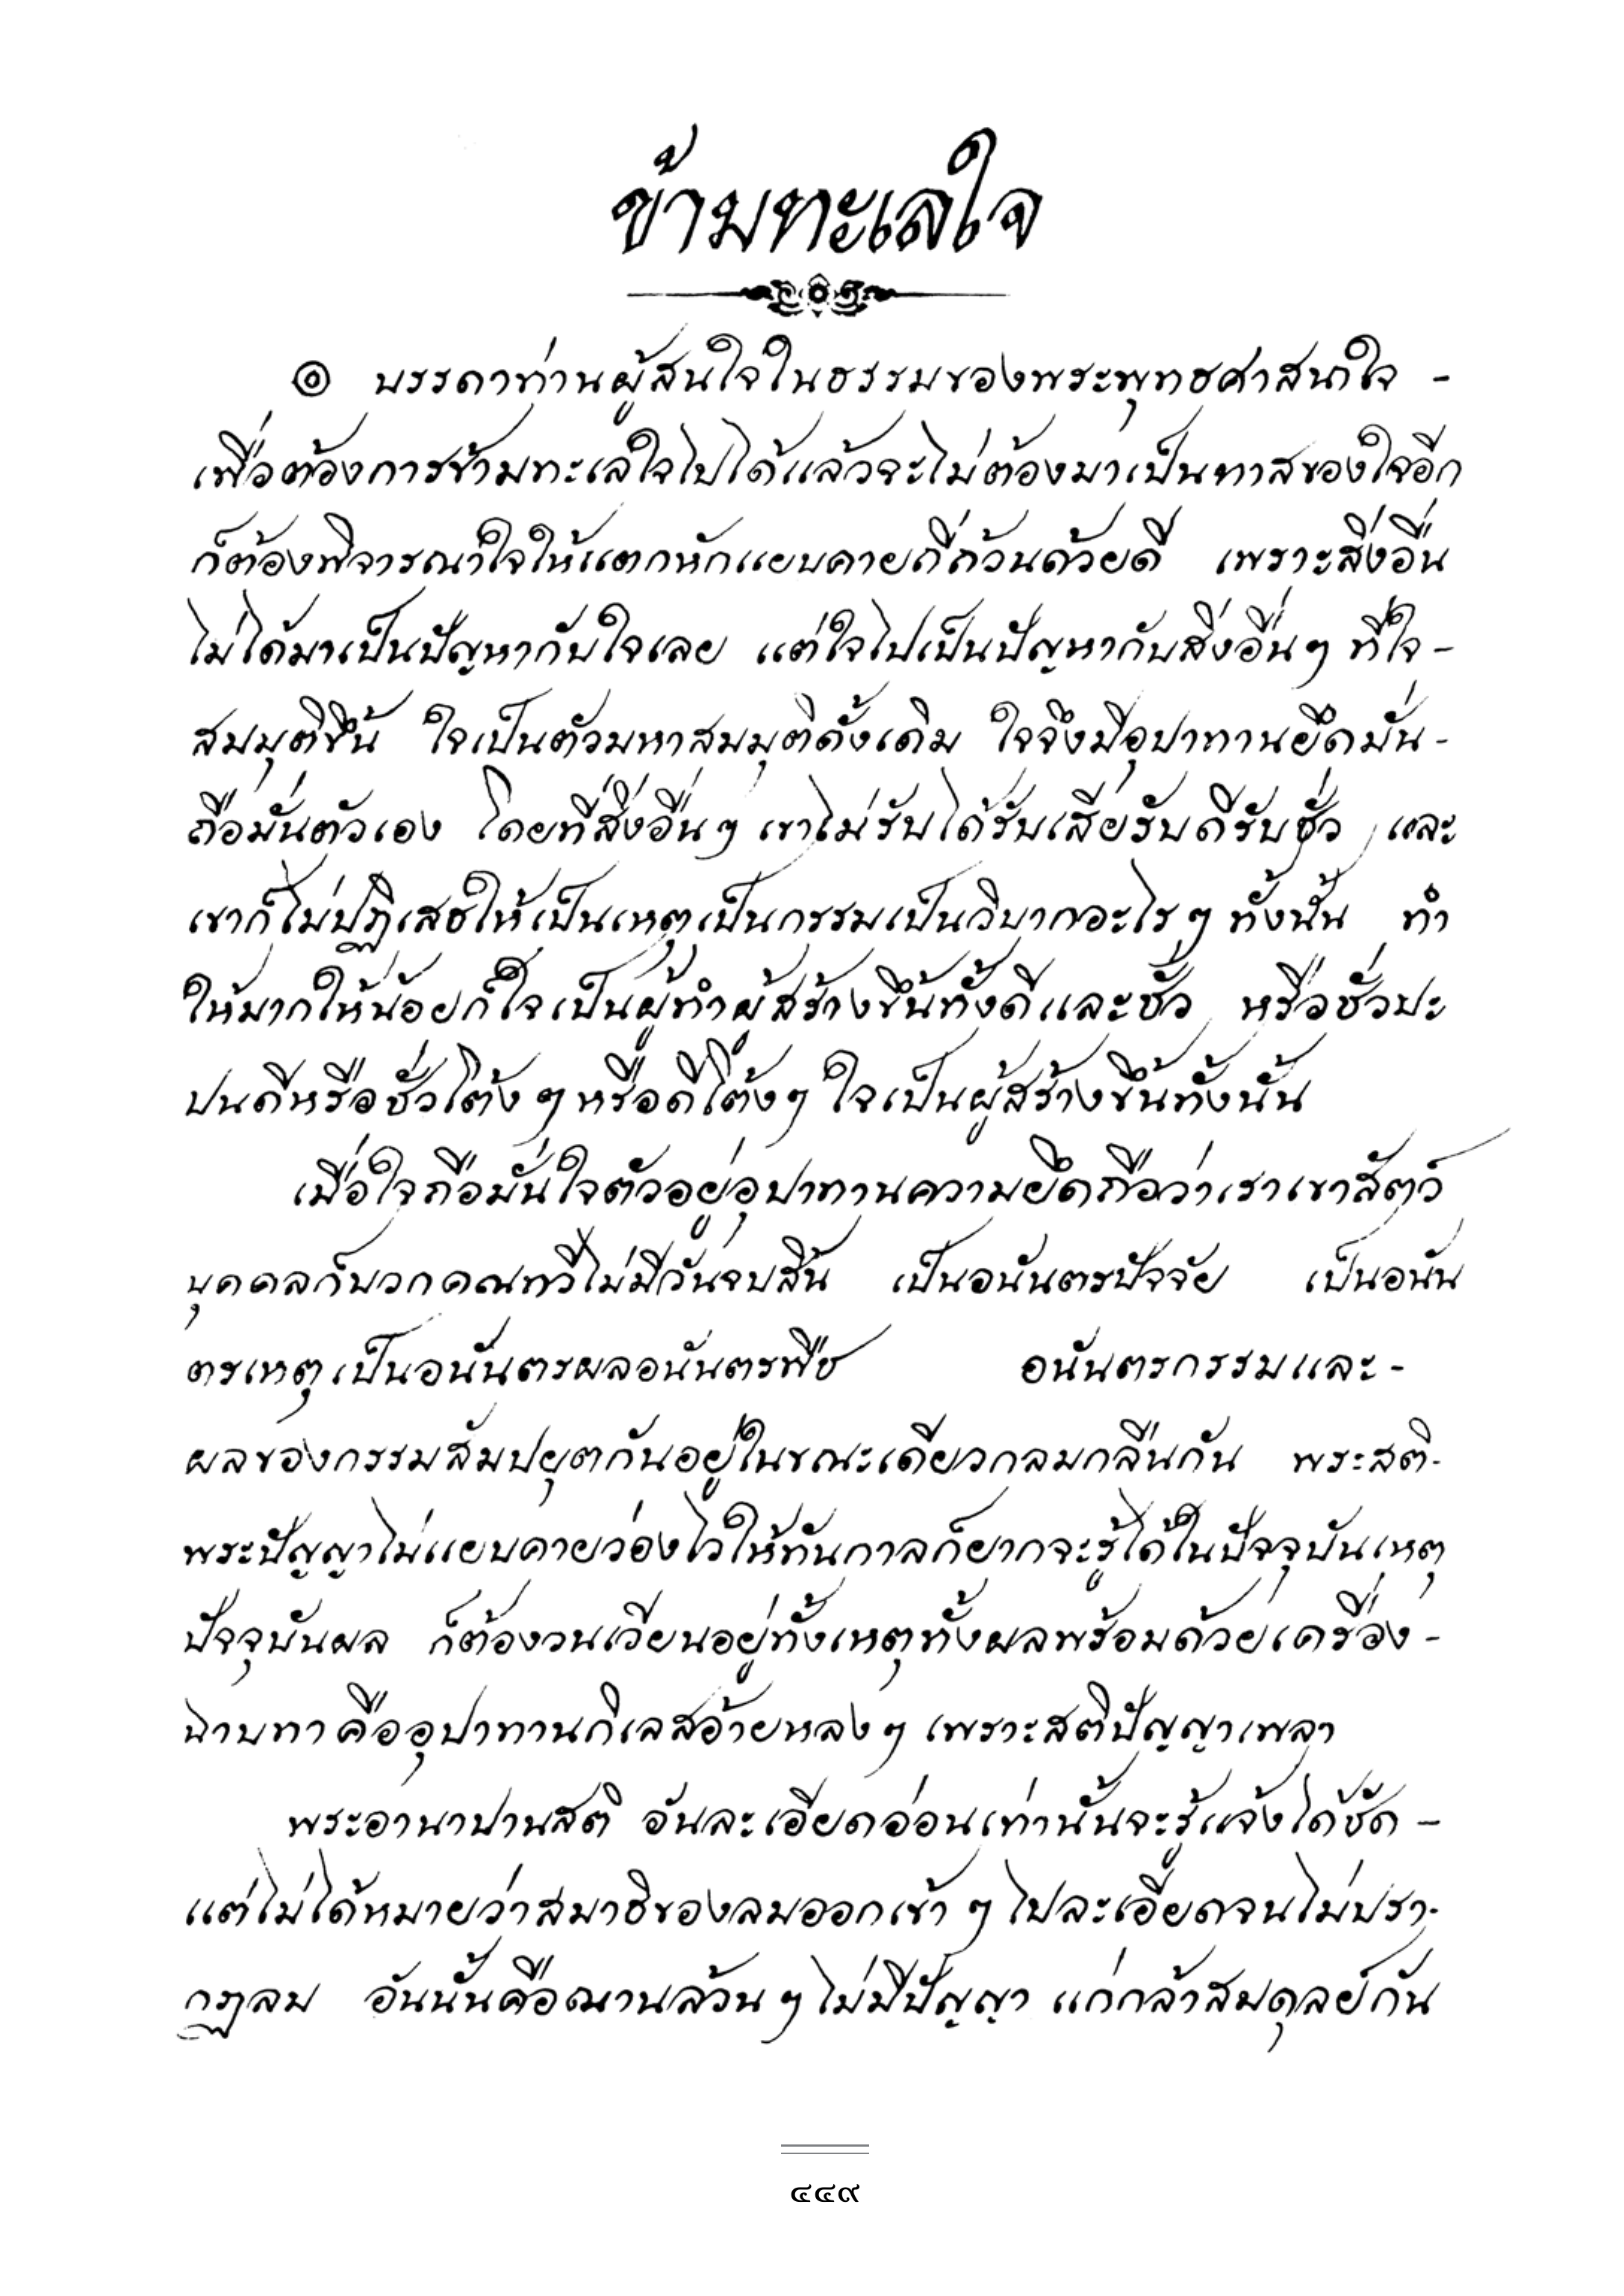 ข้ามทะเลใจ
๏ บรรดาท่านผู้สนใจในธรรมของพระพุทธศาสนาใจ -
เพื่อต้องการข้ามทะเลใจไปได้แล้วจะไม่ต้องมาเป็นทาสของใจอีก
ก็ต้องพิจารณาใจให้แตกหักแยบคายถี่ถ้วนด้วยดี เพราะสิ่งอื่น
ไม่ได้มาเป็นปัญหากับใจเลย แต่ใจไปเป็นปัญหากับสิ่งอื่นๆ ที่ใจ -
สมมุติขึ้น ใจเป็นตัวมหาสมมุติดั้งเดิม ใจจึงมีอุปาทานยึดมั่น -
ถือมั่นตัวเอง โดยที่สิ่งอื่นๆ เขาไม่รับได้รับเสียรับดีรับชั่ว และ
เขาก็ไม่ปฏิเสธให้เป็นเหตุเป็นกรรมเป็นวิบากอะไรๆ ทั้งนั้น ทำ
ให้มากให้น้อยก็ใจเป็นผู้ทำผู้สร้างขึ้นทั้งดีและชั่ว หรือชั่วปะ
ปนดีหรือชั่วโต้งๆ หรือดีโต้งๆ ใจเป็นผู้สร้างขึ้นทั้งนั้น
เมื่อใจถือมั่นใจตัวอยู่อุปาทานความยึดถือว่าเราเขาสัตว์
บุคคลก็บวกคณทวีไม่มีวันจบสิ้น เป็นอนันตรปัจจัย เป็นอนัน
ตรเหตุเป็นอนันตรผลอนันตรพืช อนันตรกรรมและ -
ผลของกรรมสัมปยุตกันอยู่ในขณะเดียวกลมกลืนกัน พระสติ -
พระปัญญาไม่แยบคายว่องไวให้ทันกาลก็ยากจะรู้ได้ในปัจจุบันเหตุ
ปัจจุบันผล ก็ต้องวนเวียนอยู่ทั้งเหตุทั้งผลพร้อมด้วยเครื่อง -
ฉาบทาคืออุปาทานกิเลสอ้ายหลงๆ เพราะสติปัญญาเพลา
พระอานาปานสติ อันละเอียดอ่อนเท่านั้นจะรู้แจ้งได้ชัด -
แต่ไม่ได้หมายว่าสมาธิของลมออกเข้าๆ ไปละเอียดจนไม่ปรา -
กฏลม อันนั้นคือฌานล้วนๆ ไม่มีปัญญา แก่กล้าสมดุลย์กัน
๔๔๙